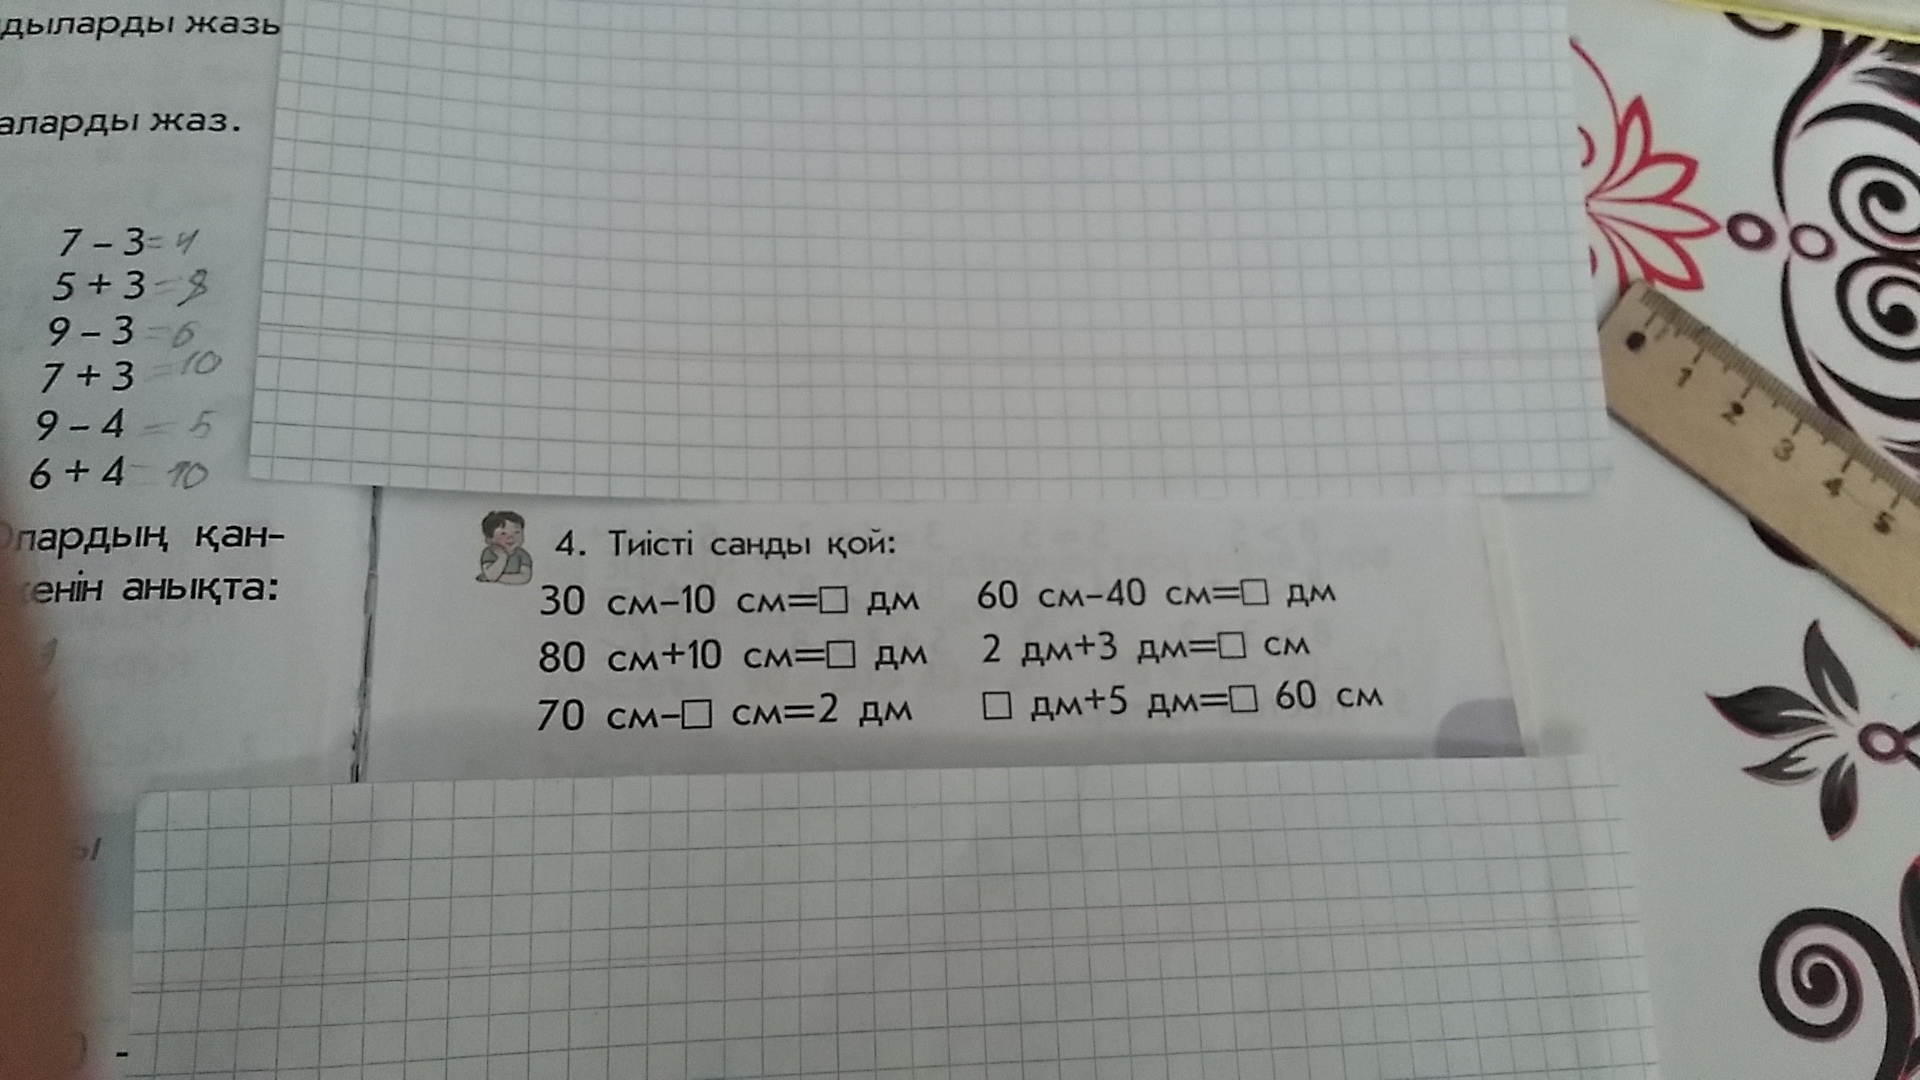 жазь
жаз.
7 – 3 = 4
5 + 3 = 8
9 – 3 = 6
7 + 3 = 10
9 – 4 = 5
6 + 4 = 10
қан-
анықта:
4. Тиісті санды қой:
30 см–10 см=□ дм
80 см+10 см=□ дм
70 см–□ см=2 дм
60 см–40 см=□ дм
2 дм+3 дм=□ см
□ дм+5 дм=□ 60 см
1
2
3
4
5